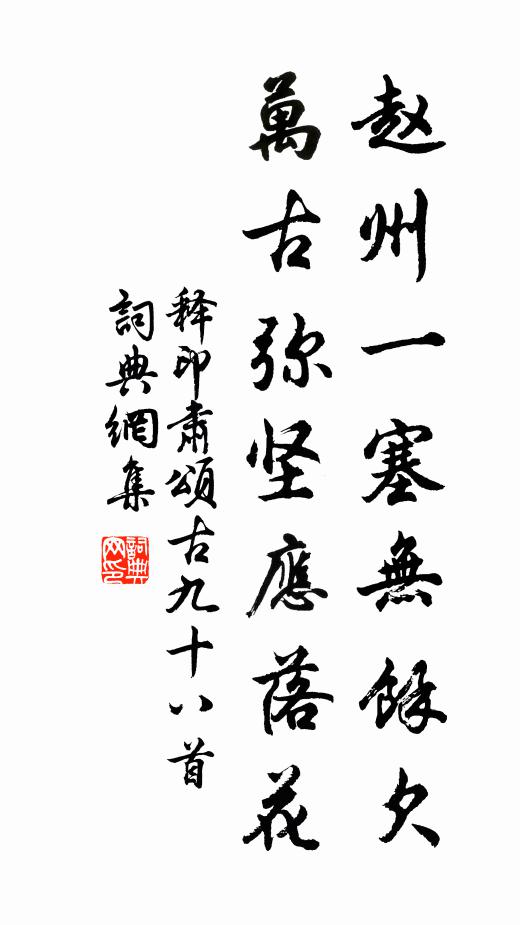 赵州一塞無餘欠
萬古弥坚應落花
释印肃頌古九十八首
詞典網集
詞典网印